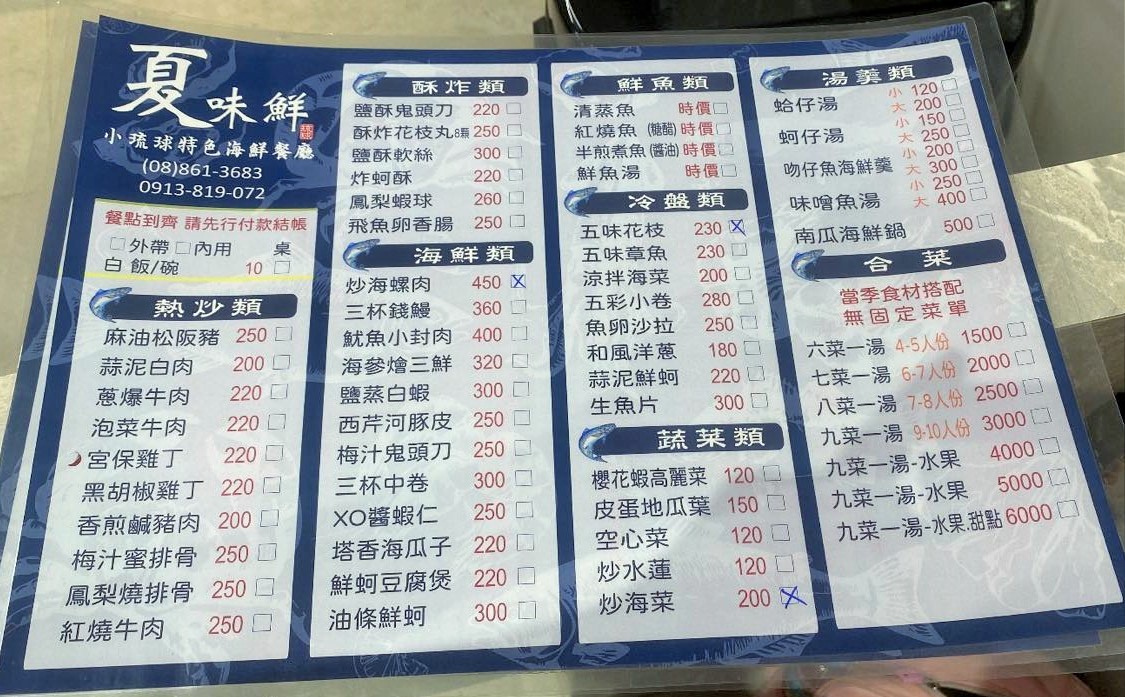 夏味鮮
小琉球特色海鮮餐廳
(08)861-3683
0913-819-072
餐點到齊 請先行付款結帳
□外帶 □內用 桌
白飯/碗 10 □
熱炒類
麻油松阪豬 250 □
蒜泥白肉 200 □
蔥爆牛肉 220 □
泡菜牛肉 220 □
宮保雞丁 220 □
黑胡椒雞丁 220 □
香煎鹹豬肉 200 □
梅汁蜜排骨 250 □
鳳梨燒排骨 250 □
紅燒牛肉 250 □
酥炸類
鹽酥鬼頭刀 220 □
酥炸花枝丸8顆 250 □
鹽酥軟絲 300 □
炸蚵酥 220 □
鳳梨蝦球 260 □
飛魚卵香腸 250 □
海鮮類
炒海螺肉 450 ☒
三杯錢鰻 360 □
魷魚小封肉 400 □
海參燴三鮮 320 □
鹽蒸白蝦 300 □
西芹河豚皮 250 □
梅汁鬼頭刀 250 □
三杯中卷 300 □
XO醬蝦仁 250 □
塔香海瓜子 220 □
鮮蚵豆腐煲 220 □
油條鮮蚵 300 □
鮮魚類
清蒸魚 時價 □
紅燒魚(糖醋) 時價 □
半煎煮魚(醬油) 時價 □
鮮魚湯 時價 □
冷盤類
五味花枝 230 ☒
五味章魚 230 □
涼拌海菜 200 □
五彩小卷 280 □
魚卵沙拉 250 □
和風洋蔥 180 □
蒜泥鮮蚵 220 □
生魚片 300 □
蔬菜類
櫻花蝦高麗菜 120 □
皮蛋地瓜葉 150 □
空心菜 120 □
炒水蓮 120 □
炒海菜 200 ☒
湯羹類
蛤仔湯 小 120 □
大 200 □
蚵仔湯 小 150 □
大 250 □
吻仔魚海鮮羹 小 200 □
大 300 □
味噌魚湯 小 250 □
大 400 □
南瓜海鮮鍋 500 □
合菜
當季食材搭配
無固定菜單
六菜一湯 4-5人份 1500 □
七菜一湯 6-7人份 2000 □
八菜一湯 7-8人份 2500 □
九菜一湯 9-10人份 3000 □
九菜一湯-水果 4000 □
九菜一湯-水果 5000 □
九菜一湯-水果.甜點 6000 □